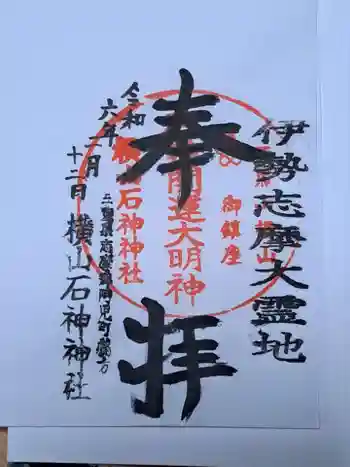 伊勢志摩大霊地
奉拝
開運大明神
御鎮座
石神神社
令和六年一月
十二日
横山石神神社
三重県志摩郡阿児町鵜方